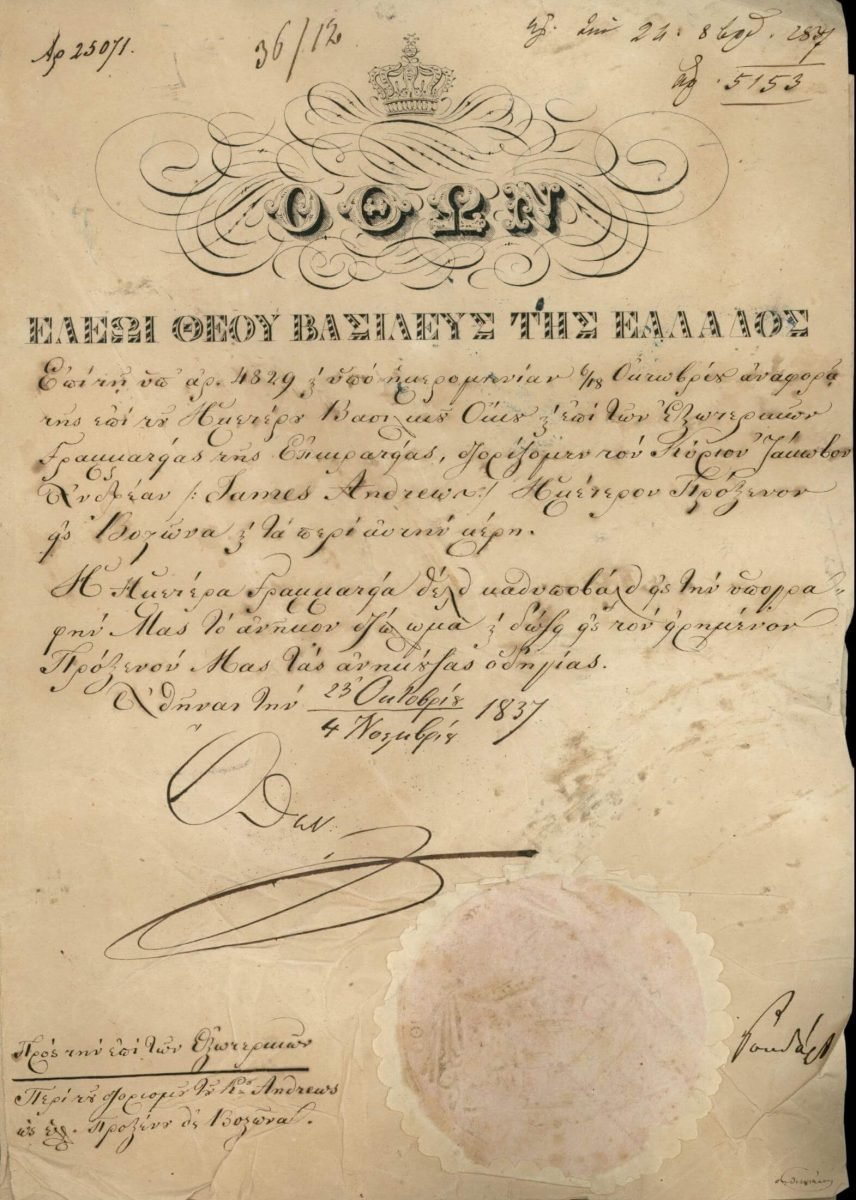 Αρ 25071.
36/12
24. 8βρ. 1837
αρ. 5153
ΟΘΩΝ
ΕΛΕΩΙ ΘΕΟΥ ΒΑΣΙΛΕΥΣ ΤΗΣ ΕΛΛΑΔΟΣ
Επί τη υπ' αρ. 4829 ϗ υπό ημερομηνίαν 6/18 Οκτωβρίου αναφορά
της επί του Ημετέρου Βασιλικού Οίκου ϗ επί των Εξωτερικών
Γραμματείας της Επικρατείας, διορίζομεν τον Κύριον Ιάκωβον
Ανδρέαν /: James Andrews :/ Ημέτερον Πρόξενον
εις Βοστώνα ϗ τα περί αυτήν μέρη.
Η Ημετέρα Γραμματεία θέλει καθυποβάλει εις την υπογρα=
φήν Μας το ανήκον δίπλωμα ϗ δώσει εις τον ειρημένον
Πρόξενόν Μας τας ανηκούσας οδηγίας.
Αθήναι την 23 Οκτωβρίου / 4 Νοεμβρίου 1837
Όθων
Προς την επί των Εξωτερικών
Περί του διορισμού του Κου Andrews
ως Προξένου δε Βοστώνα.